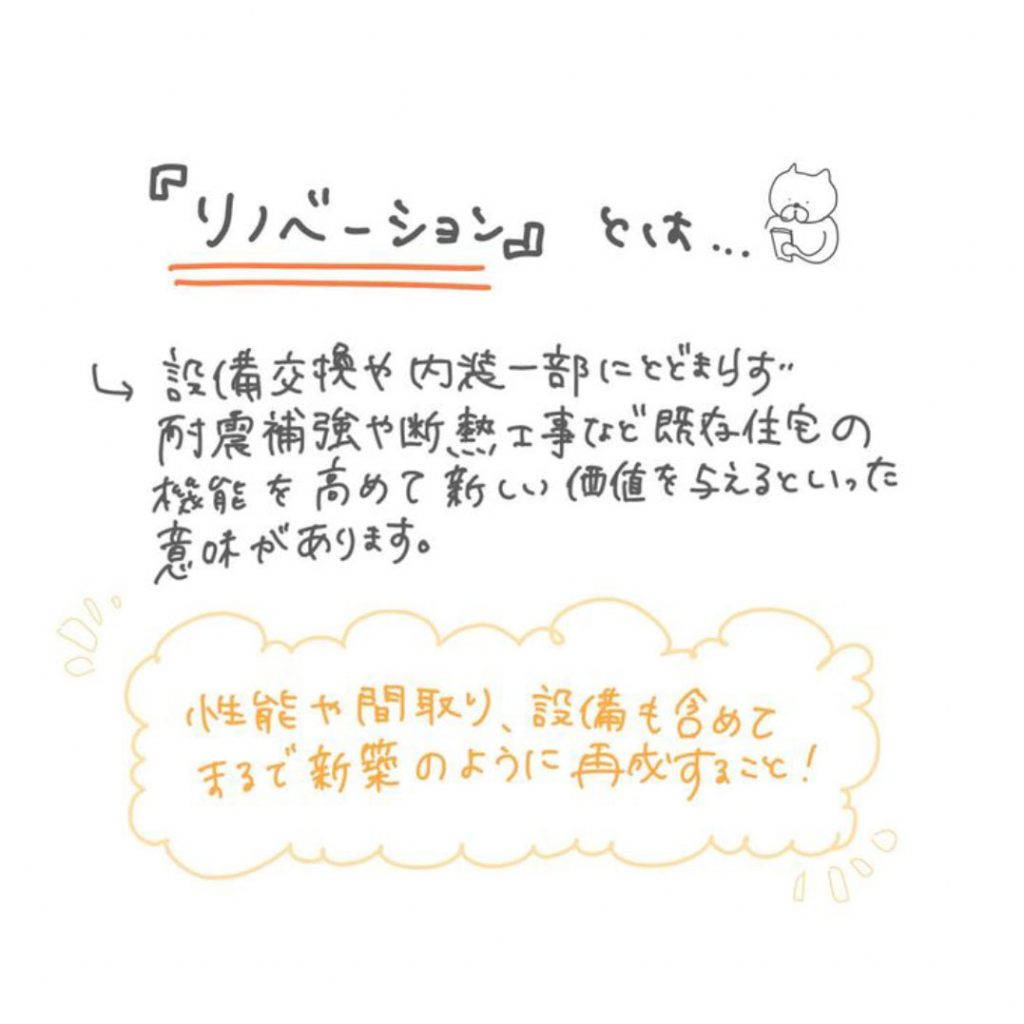 『リノベーション』とは...
設備交換や内装一部にとどまらず
耐震補強や断熱工事など既存住宅の
機能を高めて新しい価値を与えるといった
意味があります。
性能や間取り、設備も含めて
まるで新築のように再成すること!